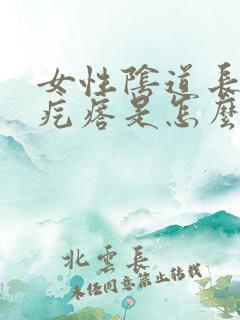 女性陰道長
疙瘩是怎麼
北雲長
未經同意禁止轉載